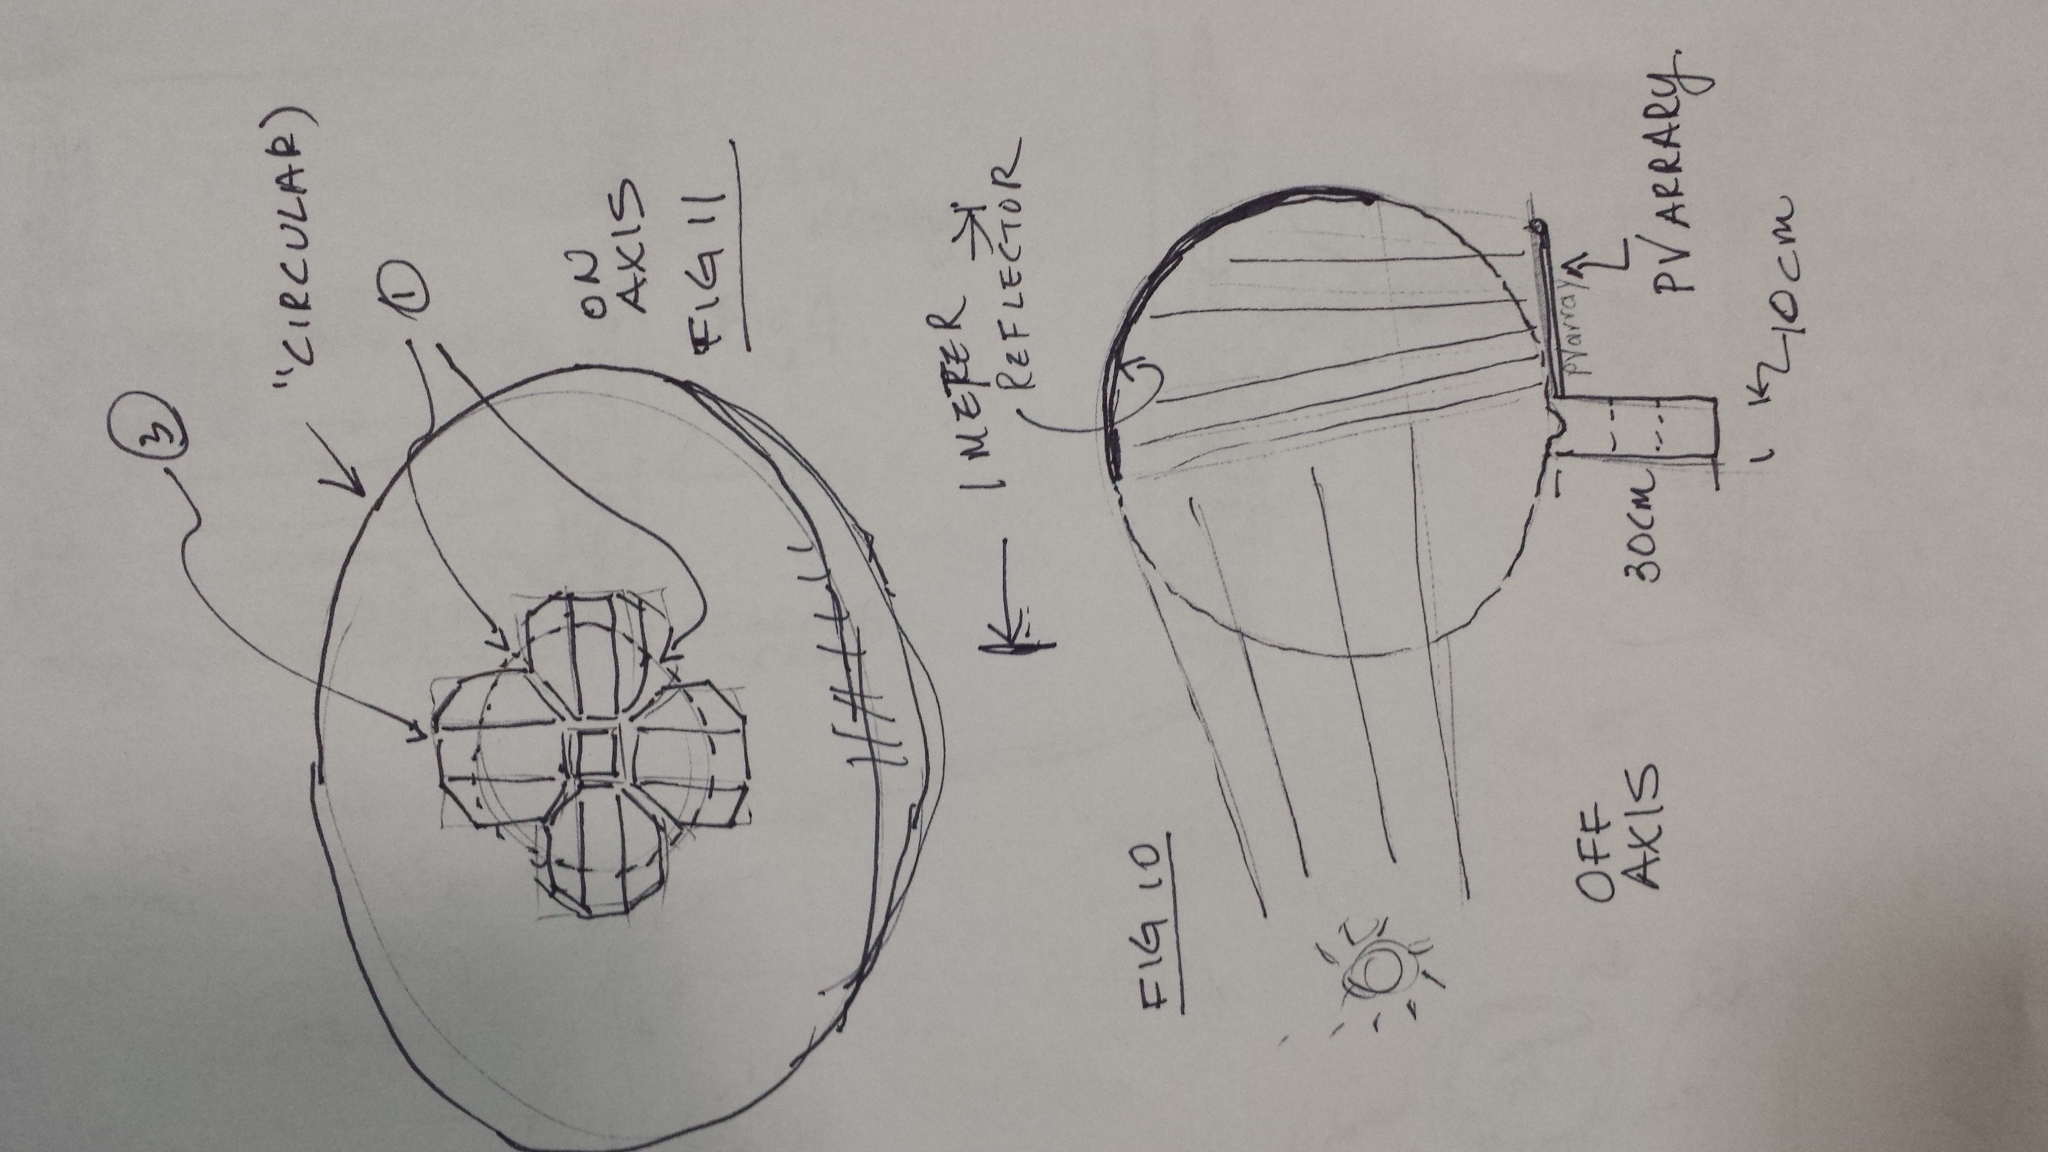 ③
"CIRCULAR)
①
ON
AXIS
FIG 11
1 METER
REFLECTOR
PVarray
PV ARRARY
10cm
30cm
FIG 10
OFF
AXIS